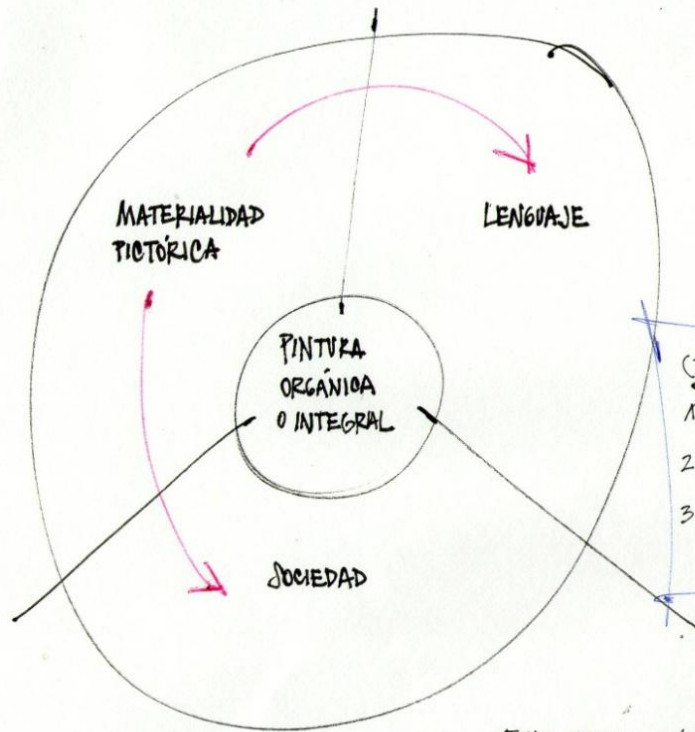 MATERIALIDAD
PICTÓRICA
LENGUAJE
PINTURA
ORGÁNICA
O INTEGRAL
1
2
3
SOCIEDAD